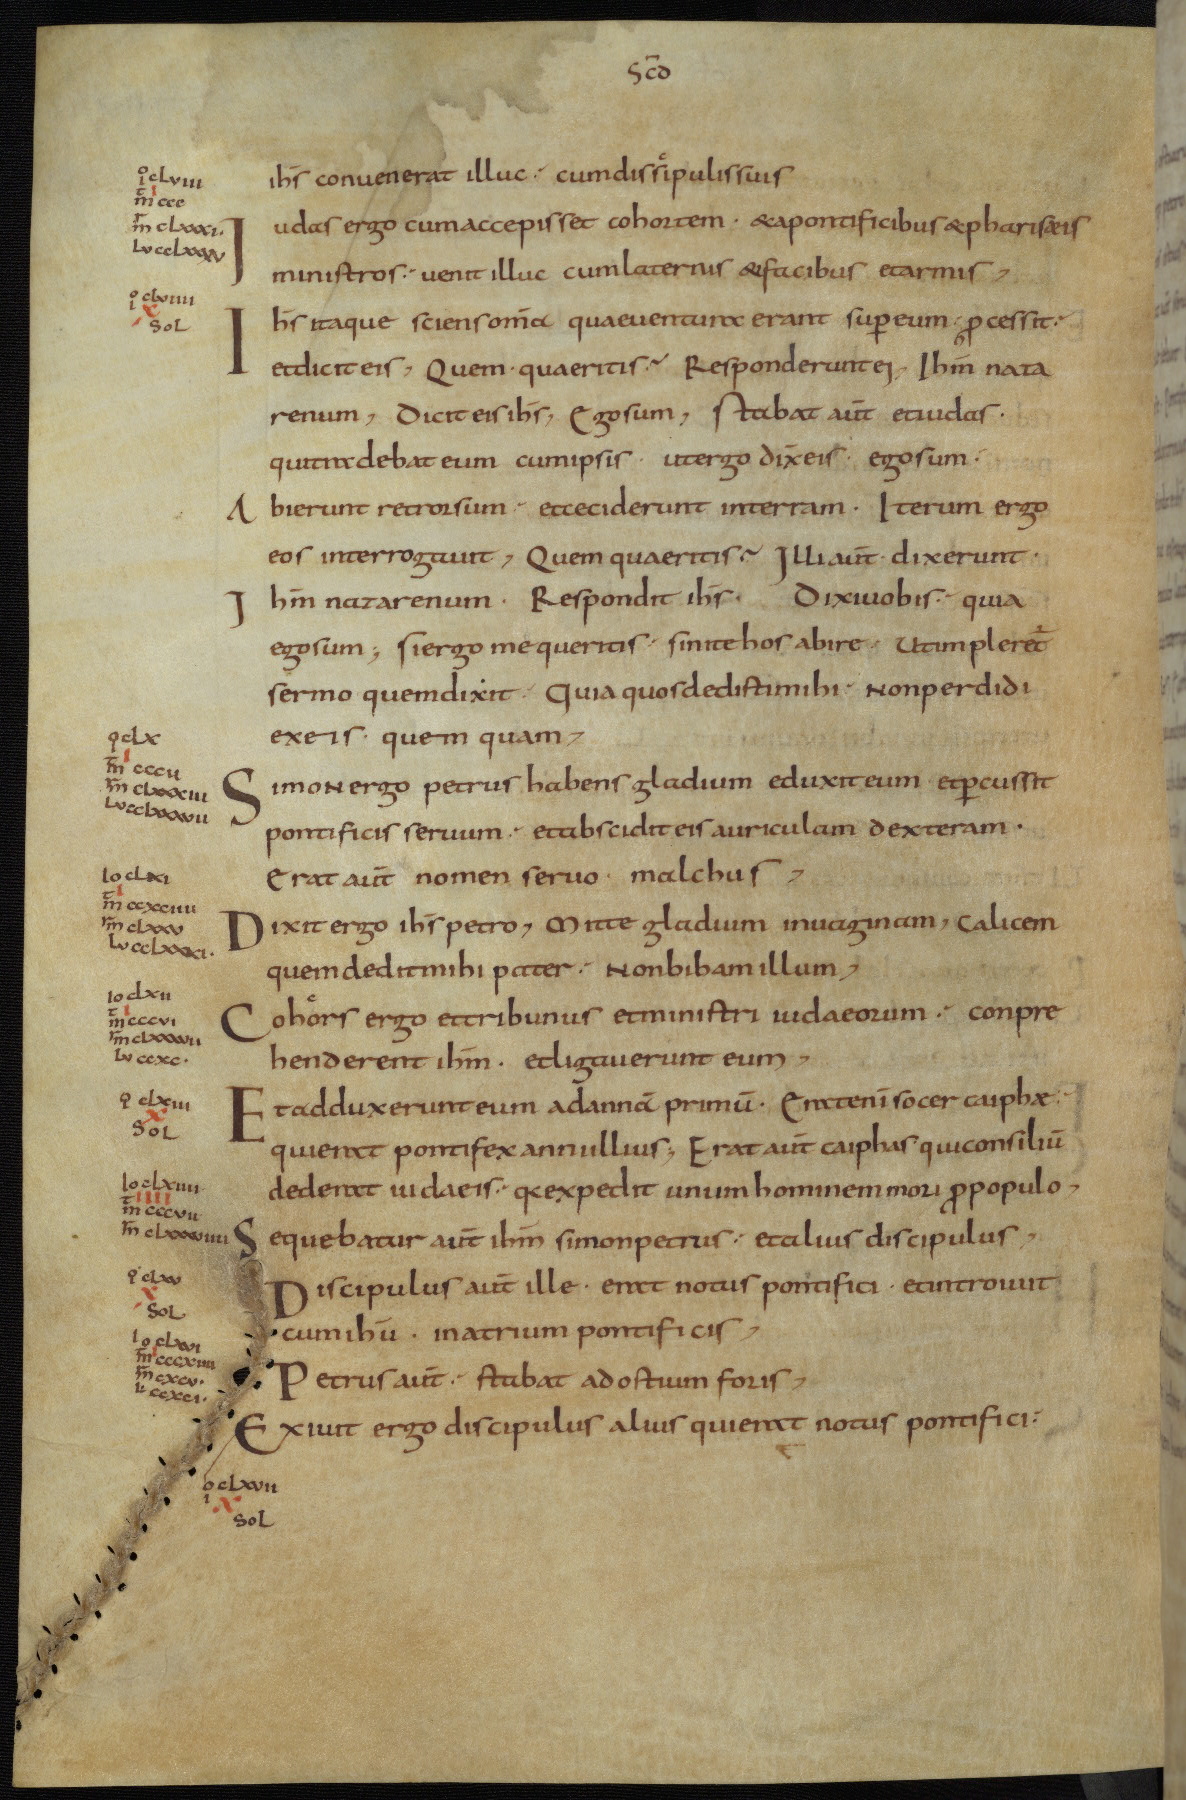 Sc̄d
ihs̄ conuenerat illuc· cumdissipulissuis
Iudas ergo cumaccepisset cohortem· &apontificibus &pharisæis
ministros· uenit illuc cumlaternis &facibus etarmis,
Ihs̄ itaque sciensom̄a quaeuentura erant sup̄eum ꝓcessit·
etdicit eis, Quem quaeritis· Responderunt ei, Ihm̄ naza
renum, Dicit eis ihs̄, Egosum, Stabat aut̄ etiudas·
quitradebat eum cumipsis· utergo dix̄eis· egosum·
Abierunt retrorsum· etceciderunt interram· Iterum ergo
eos interrogauit, Quem quaeritis· Illi aut̄ dixerunt·
Ihm̄ nazarenum· Respondit ihs̄· Dixiuobis· quia
egosum; siergo me queritis· sinite hos abire· Utimpleret̄
sermo quemdixit· Quia quosdedistimihi· Nonperdidi
exeis· quem quam,
Simon ergo petrus habens gladium eduxit eum etp̄cussit
pontificis seruum· etabscidit eis auriculam dexteram·
Erat aut̄ nomen seruo· malchus,
Dixit ergo ihs̄ petro, Mitte gladium inuaginam, Calicem
quemdeditmihi pater· Nonbibam illum,
Cohors ergo ettribunus etministri iudaeorum· conpre
henderent ihm̄· etligauerunt eum,
Etadduxerunt eum adannā primū· Erateni̅ socer caiphæ·
quierat pontifex anniillius; Erat aut̄ caiphas quiconsiliū
dederat iudaeis· q̄expedit unum hominem mori ꝓpopulo,
Sequebatur aut̄ ihm̄ simonpetrus· etalius discipulus,
Discipulus aut̄ ille· erat notus pontifici· etintrouit
cumihū· inatrium pontificis,
Petrus aut̄· stabat adostium foris,
Exiuit ergo discipulus alius quierat notus pontifici·
io clviii
m̄ ccc
m̄ clxxxi·
lu cclxxxv
io clviiii
x
Sol
io clx
m̄ cccii
m̄ clxxxiii
lu cclxxxvii
io clxi
m̄ ccxcviii
m̄ clxxv
lu cclxxxi·
io clxii
m̄ cccvi
m̄ clxxxvii
lu ccxc·
io clxiii
x
Sol
io clxiiii
m̄ cccvii
m̄ clxxxviiii
io clxv
x
Sol
io clxvi
m̄ cccxiiii
m̄ cxcv·
lu ccxci·
io clxvii
x
Sol